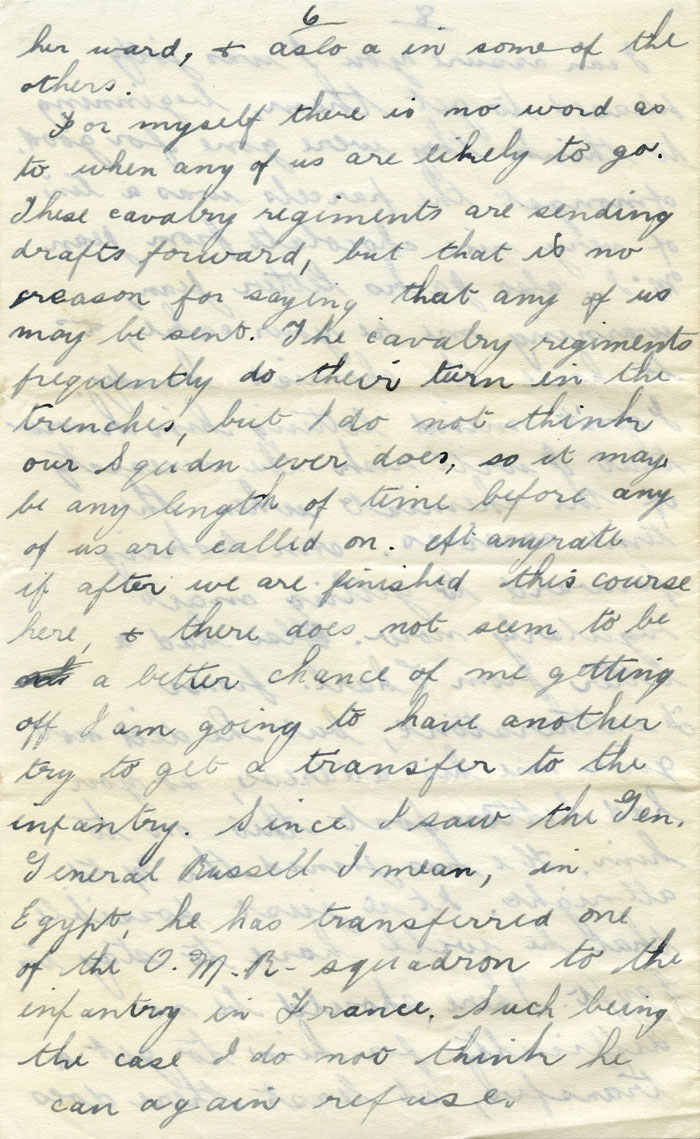 6
her ward, & aslo a in some of the
others.
For myself there is no word as
to when any of us are likely to go.
These cavalry regiments are sending
drafts forward, but that is no
reason for saying that any of us
may be sent. The cavalry regiments
frequently do their turn in the
trenches, but I do not think
our Squdn ever does, so it may
be any length of time before any
of us are called on. At anyrate
if after we are finished this course
here, & there does not seem to be
a better chance of me getting
off I am going to have another
try to get a transfer to the
infantry. Since I saw the Gen.
General Russell I mean, in
Egypt, he has transferred one
of the O.M.R- squadron to the
infantry in France. Such being
the case I do not think he
can again refuse.